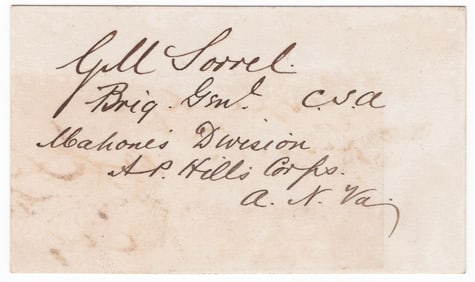 G M Sorrel.
Brig. Genl. C.S.A
Mahone's Division
A P. Hill's Corps.
A. N. Va.